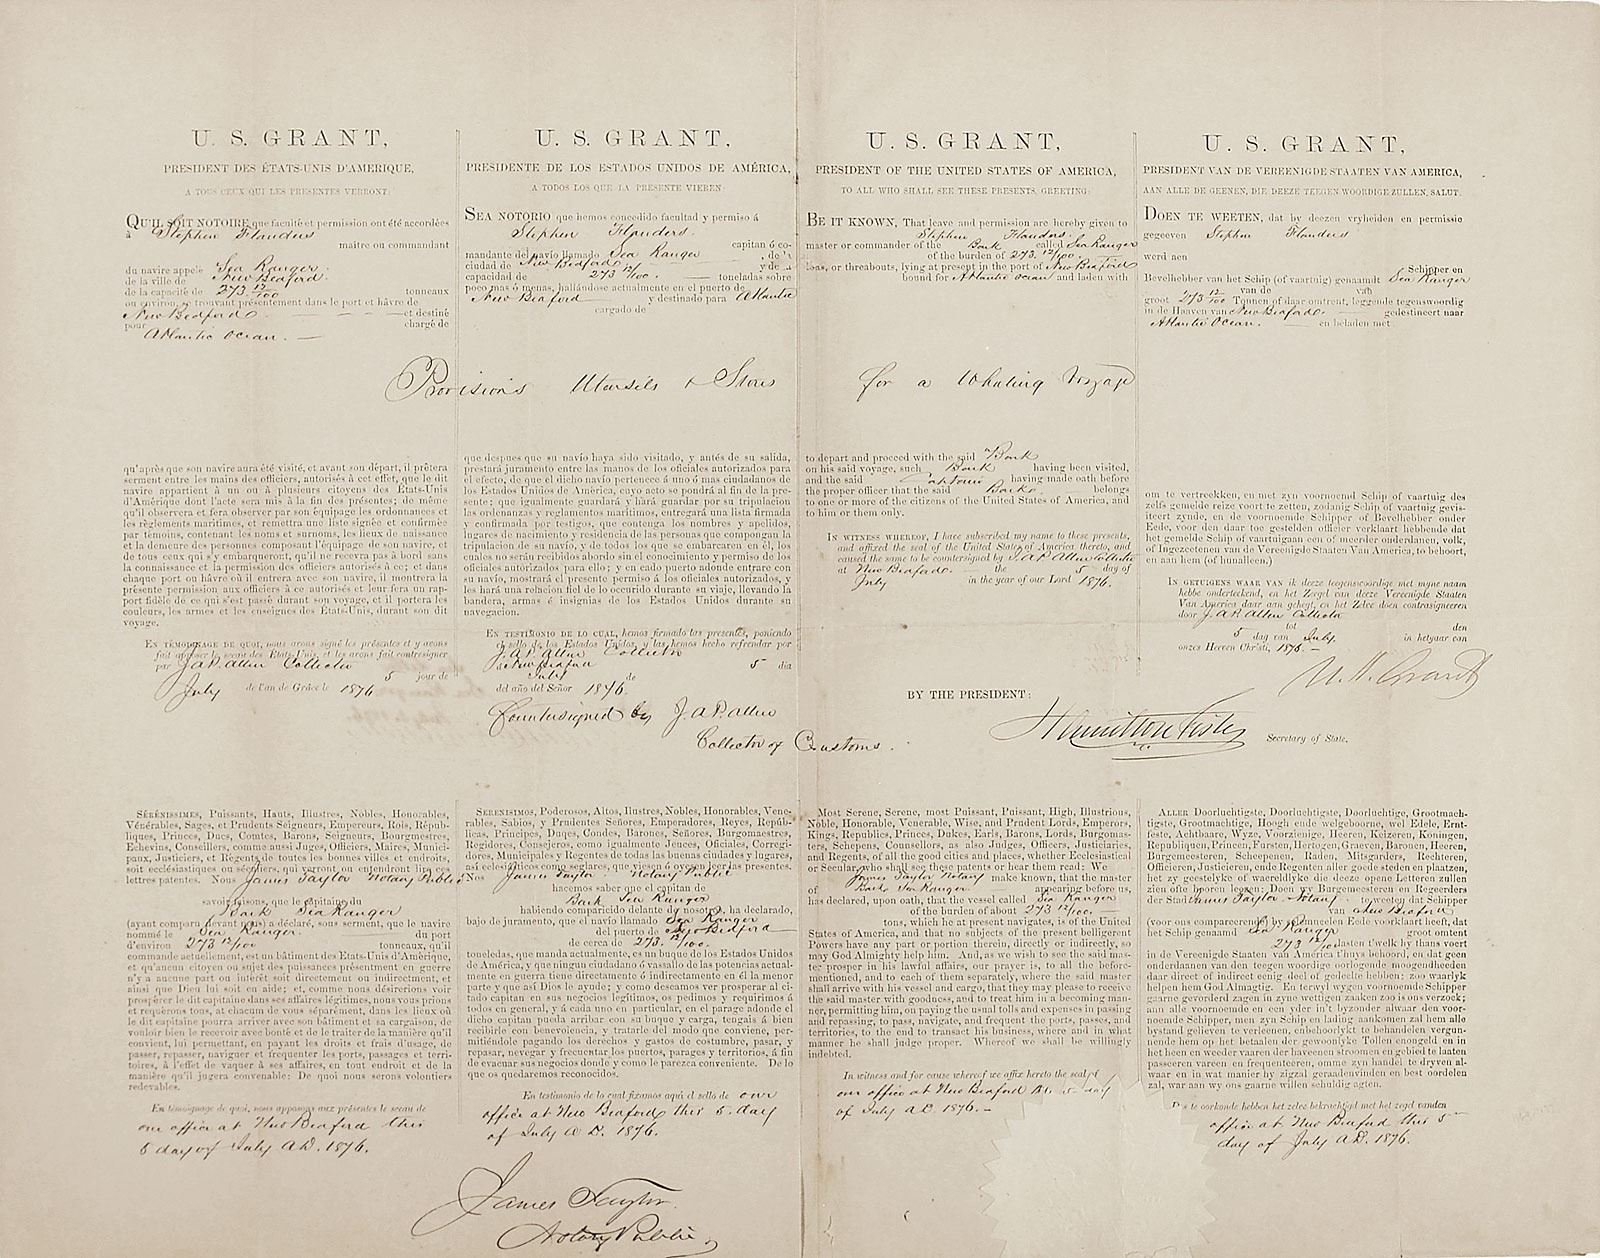 U. S. GRANT,
PRESIDENT DES ÉTATS-UNIS D'AMERIQUE,
A TOUS CEUX QUI LES PRESENTES VERRONT:
QU'IL SOIT NOTOIRE que faculté et permission ont été accordées
à Stephen Flanders
maitre ou commandant
du navire appelé Sea Ranger
de la ville de New Bedford
de la capacité de 273 12/100 tonneaux
ou environ, se trouvant présentement dans le port et hâvre de
New Bedford et destiné
pour chargé de
Atlantic Ocean.
U. S. GRANT,
PRESIDENTE DE LOS ESTADOS UNIDOS DE AMÉRICA,
A TODOS LOS QUE LA PRESENTE VIEREN:
SEA NOTORIO que hemos concedido facultad y permiso á
Stephen Flanders. capitan ó co-
mandante del navío llamado Sea Ranger
ciudad de New Bedford y de
capacidad de 273 12/100. toneladas sobre
poco mas ó menas, hallándose actualmente en el puerto de
New Bedford y destinado para Atlantic
cargado de
U. S. GRANT,
PRESIDENT OF THE UNITED STATES OF AMERICA,
TO ALL WHO SHALL SEE THESE PRESENTS, GREETING:
BE IT KNOWN, That leave and permission are hereby given to
Stephen Flanders.
master or commander of the Bark called Sea Ranger
of the burden of 273 12/100.
tons, or threabouts, lying at present in the port of New Bedford
bound for Atlantic ocean and laden with
U. S. GRANT,
PRESIDENT VAN DE VEREENIGDE STAATEN VAN AMERICA,
AAN ALLE DE GEENEN, DIE DEEZE TEEGEN-WOORDIGE ZULLEN, SALUT:
DOEN TE WEETEN, dat by deezen vryheiden en permissie
gegeeven Stephen Flanders
werd aen
Schipper en
Bevelhebber van het Schip (of vaartuig) genaamdt Sea Ranger
van de van
groot 273 12/100 Tonnen of daar omtrent, leggende tegenswoordig
in de Haaven van New Bedford. gedestineert naar
Atlantic Ocean. en beladen met
Provisions Utensils & Stores for a Whaling Voyage
qu'après que son navire aura été visité, et avant son départ, il prêtera
serment entre les mains des officiers, autorisés à cet effet, que le dit
navire appartient à un ou à plusieurs citoyens des États-Unis
d'Amérique dont l'acte sera mis à la fin des présentes; de même
qu'il observera et fera observer par son équipage les ordonnances et
les règlements maritimes, et remettra une liste signée et confirmée
par témoins, contenant les noms et surnoms, les lieux de naissance
et la demeure des personnes composant l'équipage de son navire, et
de tous ceux qui s'y embarqueront, qu'il ne recevra pas à bord sans
la connaissance et la permission des officiers autorisés à ce; et dans
chaque port ou hâvre où il entrera avec son navire, il montrera la
présente permission aux officiers à ce autorisés et leur fera un rap-
port fidèle de ce qui s'est passé durant son voyage, et il portera les
couleurs, les armes et les enseignes des États-Unis, durant son dit
voyage.
EN TÉMOIGNAGE DE QUOI, nous avons signé les présentes et y avons
fait apposer le sceau des États-Unis, et les avons fait contresigner
par J.A.P. Allen Collector
5 jour de
July de l'an de Grâce le 1876
que despues que su navío haya sido visitado, y antés de su salida,
prestará juramento entre las manos de los oficiales autorizados para
el efecto, de que él dicho navío pertenece á uno ó mas ciudadanos de
los Estados Unidos de América, cayo acto se pondrá al fin de la pre-
sente; que igualmente guardará y hará guardar por su tripulacion
las ordenanzas y reglamentos marítimos, entregará una lista firmada
y confirmada por testigos, que contenga los nombres y apelidos,
lugares de nacimiento y residencia de las personas que compongan la
tripulacion de su navío, y de todos los que se embarcaren en él, los
cuales no serán recibidos abordo sin el conocimiento y permiso de los
oficiales autorizados para ello; y en cado puerto adonde entrare con
su navío, mostrará el presente permiso á los oficiales autorizados, y
les hará una relacion fiel de lo ocurrido durante su viaje, llevando la
bandera, armas é insignias de los Estados Unidos durante su
navegacion.
EN TESTIMONIO DE LO CUAL, hemos firmado las presentes, poniendo
el sello de los Estados Unidos, y las hemos hecho refrendar por
J.A.P. Allen Collector
at New Bedford 5 dia
July de
del año del Señor 1876.
Countersigned by J.A.P. Allen
Collector of Customs.
to depart and proceed with the said Bark
on his said voyage, such Bark having been visited,
and the said Captain having made oath before
the proper officer that the said Bark belongs
to one or more of the citizens of the United States of America, and
to him or them only.
IN WITNESS WHEREOF, I have subscribed my name to these presents,
and affixed the seal of the United States of America thereto, and
caused the same to be countersigned by J.A.P. Allen Collector
at New Bedford the 5 day of
July in the year of our Lord 1876.
om te vertreekken, en met zyn voornoemd Schip of vaartuig des
zelfs gemelde reize voort te zetten, zodanig Schip of vaartuig gevis-
iteert zynde, en de voornoemde Schipper of Bevelhebber onder
Eede, voor den daar toe gestelden officier verklaart hebbende dat
het gemelde Schip of vaartuigaan een of meerder onderdanen, volk,
of Ingezeetenen van de Vereenigde Staaten Van America, te behoort,
en aan hem (of hunalleen.)
IN GETUIGENS WAAR VAN ik deeze teegenswoordige met myne naam
hebbe onderteekend, en het Zeegel van deeze Vereenigde Staaten
Van America daar aan gehegt, en het Zelce doen contrasigneeren
door J.A.P. Allen Collector
tot den
5 dag van July, in hetjaar van
onzes Heeren Christi, 1876.
U. S. Grant
BY THE PRESIDENT:
Hamilton Fish
Secretary of State.
SÉRÉNISSIMES, Puissants, Hauts, Illustres, Nobles, Honorables,
Vénérables, Sages, et Prudents Seigneurs, Empereurs, Rois, Répub-
liques, Princes, Ducs, Comtes, Barons, Seigneurs, Bourgmestres,
Echevins, Conseillers, comme aussi Juges, Officiers, Maires, Munici-
paux, Justiciers, et Régents de toutes les bonnes villes et endroits,
soit ecclésiastiques ou séculiers, qui verront ou entendront lire ces
lettres patentes. Nous James Taylor Notary Public
savoir faisons, que le capitaine du
Bark Sea Ranger
(ayant comparu devant nous) a déclaré, sous serment, que le navire
nommé le Sea Ranger. du port
d'environ 273 12/100 tonneaux, qu'il
commande actuellement, est un bâtiment des États-Unis d'Amérique,
et qu'aucun citoyen ou sujet des puissances présentement en guerre
n'y a aucune part ou intérêt soit directement ou indirectement, et
ainsi que Dieu lui soit en aide; et, comme nous désirerions voir
prospérer le dit capitaine dans ses affaires légitimes, nous vous prions
et requérons tous, at chacum de vous séparément, dans les lieux où
le dit capitaine pourra arriver avec son bâtiment et sa cargaison, de
vouloir bien le recevoir avec bonté et de le traiter de la manière qu'il
convient, lui permettant, en payant les droits et frais d'usage, de
passer, repasser, naviguer et frequenter les ports, passages et terri-
toires, à l'effet de vaquer à ses affaires, en tout endroit et de la
manière qu'il jugera convenable: De quoi nous serons volontiers
redevables.
En témoignage de quoi, nous apposons aux présentes le sceau de
our office at New Bedford this
5 day of July A.D. 1876.
SERENISIMOS, Poderosos, Altos, Ilustres, Nobles, Honorables, Vene-
rables, Sabios, y Prudentes Señores, Emperadores, Reyes, Repúb-
licas, Principes, Duqes, Condes, Barones, Señores, Burgomaestres,
Regidores, Consejeros, como igualmente Jeuces, Oficiales, Corregi-
dores, Municipales y Regentes de todas las buenas ciudades y lugares,
asi eclesiásticos como seglares, que viesen ó oyesen leer las presentes.
Nos James Taylor Notary Public
hacemos saber que el capitan de
Bark Sea Ranger
habiendo comparicido delante de nosotros, ha declarado,
bajo de juramento, que el navío llamado Sea Ranger
del puerto de New Bedford
de cerca de 273. 12/100.
toneledas, que manda actualmente, es un buque de los Estados Unidos
de América, y que ningun ciudadano ó vasallo de las potencias actualmente
en guerra tiene directamente ó indirectamente en él la menor
parte y que así Dios le ayude; y como descamos ver prosperar al ci-
tado capitan en sus negocios legítimos, os pedimos y requirimos á
todos en general, y á cada uno en particular, en el parage adonde el
dicho capitan pueda arribar con su buque y carga, tengais á bien
recibirle con benevolencia, y tratarle del modo que conviene, per-
mitiéndole pagando los derechos y gastos de costumbre, pasar, y
repasar, nevegar y frecuentar los puertos, parages y territorios, á fin
de evacuar sus negocios donde y como le parezca conveniente. De lo
que os quedaremos reconocidos.
En testimonio de lo cual fixamos aqui el sello de our
office at New Bedford this 5 day
of July A.D. 1876.
James Taylor
Notary Public
MOST SERENE, Serene, most Puissant, Puissant, High, Illustrious,
Noble, Honorable, Venerable, Wise, and Prudent Lords, Emperors,
Kings, Republics, Princes, Dukes, Earls, Barons, Lords, Burgomas-
ters, Schepens, Counsellors, as also Judges, Officers, Justiciaries,
and Regents, of all the good cities and places, whether Ecclesiastical
or Secular, who shall see these patents or hear them read: We
James Taylor Notary make known, that the master
of Bark Sea Ranger appearing before us,
has declared, upon oath, that the vessel called Sea Ranger
of the burden of about 273 12/100,
tons, which he at present navigates, is of the United
States of America, and that no subjects of the present belligerent
Powers have any part or portion therein, directly or indirectly, so
may God Almighty help him. And, as we wish to see the said mas-
ter prosper in his lawful affairs, our prayer is, to all the before-
mentioned, and to each of them separately, where the said master
shall arrive with his vessel and cargo, that they may please to receive
the said master with goodness, and to treat him in a becoming man-
ner, permitting him, on paying the usual tolls and expenses in passing
and repassing, to pass, navigate, and frequent the ports, passes, and
territories, to the end to transact his business, where and in what
manner he shall judge proper. Whereof we shall be willingly
indebted.
In witness and for cause whereof we affix hereto the seal of
our office at New Bedford 5 day
of July A.D. 1876.
ALLER Doorluchtigste, Doorluchtigste, Doorluchtige, Grootmach-
tigste, Grootmachtige, Hoogh ende welgeboorne, wel Edele, Ernt-
feste, Achtbaare, Wyze, Voorzienige, Heeren, Keizeren, Koningen,
Republiquen, Princen, Fursten, Hertogen, Graeven, Baronen, Heeren,
Burgemeesteren, Scheepenen, Raden, Mitsgarders, Rechteren,
Officieren, Justicieren, ende Regenten aller goede steden en plaatzen,
het zy geestelyke of waereldlyke die deeze opene Letteren zullen
zien ofte hooren lezen: Doen wy Burgemeesteren en Regeerders
der Stad James Taylor Notary te weeten dat Schipper
van New Bedford
(voor ons compareerende) by gedaaneden Eede verklaart heeft, dat
het Schip genaamd Sea Ranger groot omtent
273 12/100 lasten t'welk hy thans voert
in de Vereenigde Staaten van America t'huys behooren, en dat geen
onderdanen van den teegen woordige oorlogende moogendheeden
daar direct of indirect eenig deel of gedeelte hebben; zoo waarlyk
helpen hem God Almagtig. En terwyl wygen voornoemde Schipper
gaarne gevorderd zagen in zyne wettigen zaaken zoo is ons verzoek;
aan alle voornoemde en een yder in't byzonder alwaar den voor-
noemde Schipper, men zyn Schip en lading aankomen zal hem alle
bystand gelieven te verleenen, enbehoorlykt te behandelen vergun-
nende hem op het betaalen der gewoonlyke Tollen enongeld en in
het heen en weeder vaaren der haveenen stroomen en gebied te laaten
passeeren vareen en frequenteeren, omme zyn handel te dryven al-
waar en in wat manier hy zigzal geraadenvinden en best oordelen
zal, war aan wy ons gaarne willen schuldig agten.
te oorkonde hebben het zelce bekrachtigd met het zegel vanden
office at New Bedford this 5
day of July A.D. 1876.